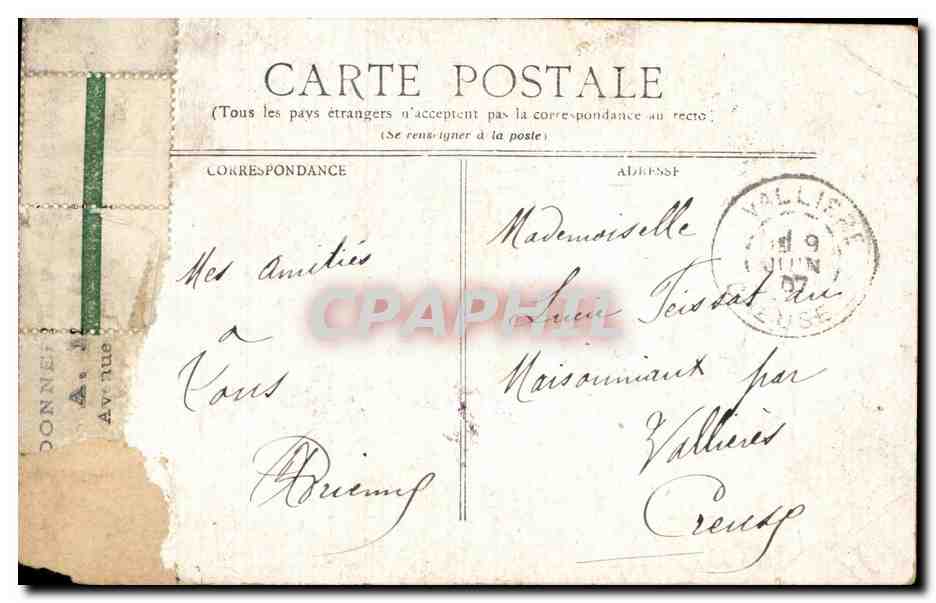 CARTE POSTALE
(Tous les pays étrangers n'acceptent pas la correspondance au recto.
(Se renseigner à la poste)
CORRESPONDANCE
ADRESSE
Mes amitiés
a
Vous
Adrienne
Mademoiselle
Teissat au
Maisonniaux par
Vallières
Creuse
VALLIERE
9
JUIN
07
CREUSE
CPAPHIL
DONNE
A.
Avenue